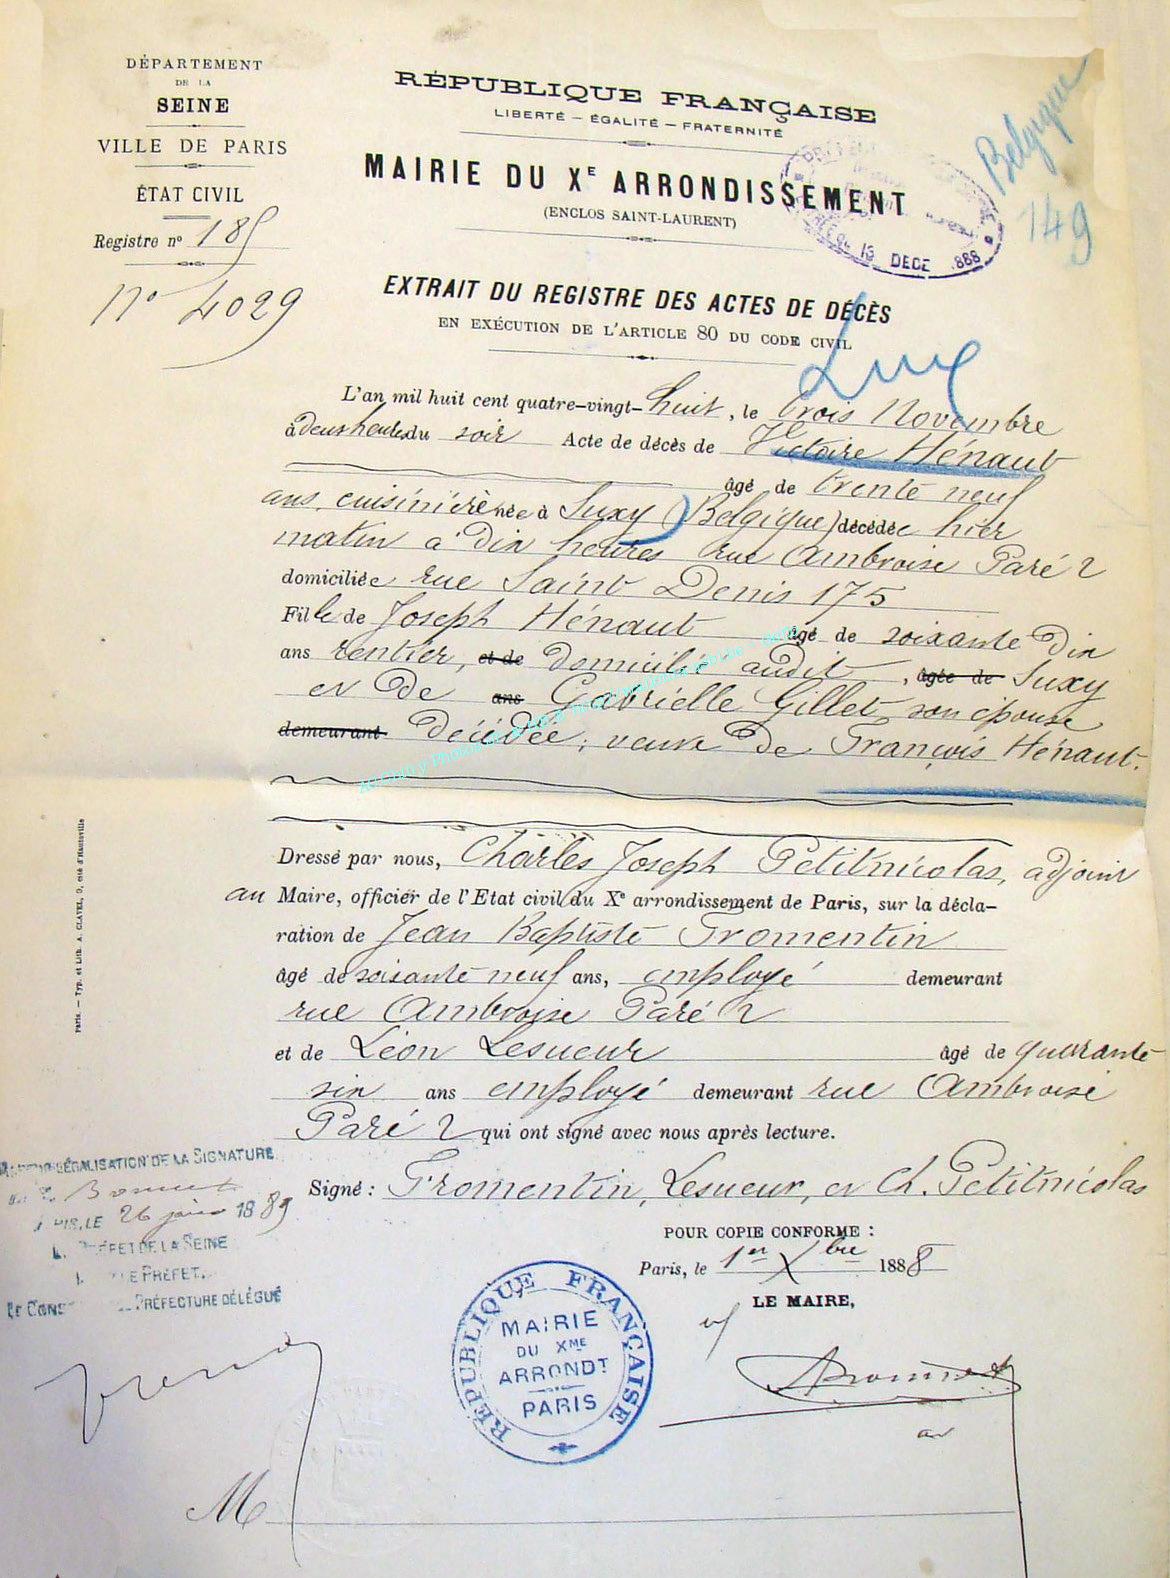 DÉPARTEMENT
DE LA
SEINE
VILLE DE PARIS
ÉTAT CIVIL
Registre nº 185
Nº 4029
RÉPUBLIQUE FRANÇAISE
LIBERTÉ – ÉGALITÉ – FRATERNITÉ
MAIRIE DU XE ARRONDISSEMENT
(ENCLOS SAINT-LAURENT)
13 DECE 1888
Belgique
149
EXTRAIT DU REGISTRE DES ACTES DE DÉCÈS
EN EXÉCUTION DE L'ARTICLE 80 DU CODE CIVIL
Lux
L'an mil huit cent quatre-vingt-huit, le trois Novembre
à deux heures du soir Acte de décès de Victoire Hénaut
âgé de trente neuf
ans, cuisinière née à Suxy (Belgique) décédée hier
matin à dix heures rue Ambroise Paré 2
domiciliée rue Saint Denis 175
Fille de Joseph Hénaut âgé de soixante dix
ans rentier, et de domicilié audit, âgée de Suxy
et de ans Gabrielle Gillet son épouse
demeurant décédée; veuve de François Hénaut.
Dressé par nous, Charles Joseph Petitnicolas, adjoint
au Maire, officier de l'Etat civil du Xe arrondissement de Paris, sur la décla-
ration de Jean Baptiste Fromentin
âgé de soixante neuf ans, employé demeurant
rue Ambroise Paré 2
et de Léon Lesueur âgé de quarante
six ans employé demeurant rue Ambroise
Paré 2 qui ont signé avec nous après lecture.
Signé : Fromentin, Lesueur, et Ch. Petitnicolas
POUR COPIE CONFORME :
Paris, le 1er Xbre 1888
LE MAIRE,
RÉPUBLIQUE FRANÇAISE
MAIRIE
DU XME
ARRONDT
PARIS
Paris. — Typ. et Lith. A. CLAVEL, 9, cité d'Hauteville
LÉGALISATION DE LA SIGNATURE
26 1889
PRÉFET DE LA SEINE
LE PRÉFET,
PRÉFECTURE DÉLÉGUÉ
M